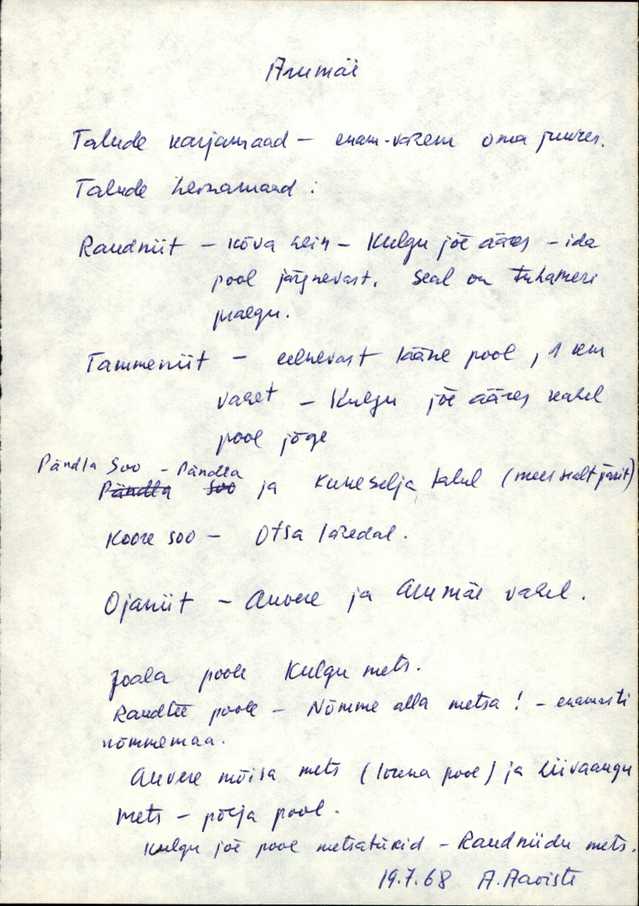 Arumäe
Talude karjamaad – enam-vähem oma juures.
Talude heinamaad :
Raudniit – kõva hein – Kulgu jõe ääres – ida
pool järgnevast. Seal on tuhameri
praegu.
Tammeniit – eelnevast lääne pool, 1 km
vahet – Kulgu jõe ääres kahel
pool jõge
Pändla Soo – Pändla
Pändla Soo ja Kureselja talul (mees sealt pärit)
Koore soo – Otsa läredal.
Ojaniit – Auvere ja Arumäe vahel.
Joala poole Kulgu mets.
Raudtee poole – Nõmme alla metsa! – enamasti
nõmmemaa.
Auvere mõisa mets (lõuna pool) ja Liivaaugu
mets – põhja pool.
Kulgu jõe pool metsatükid – Raudniidu mets.
19.7.68 A. Aaviste